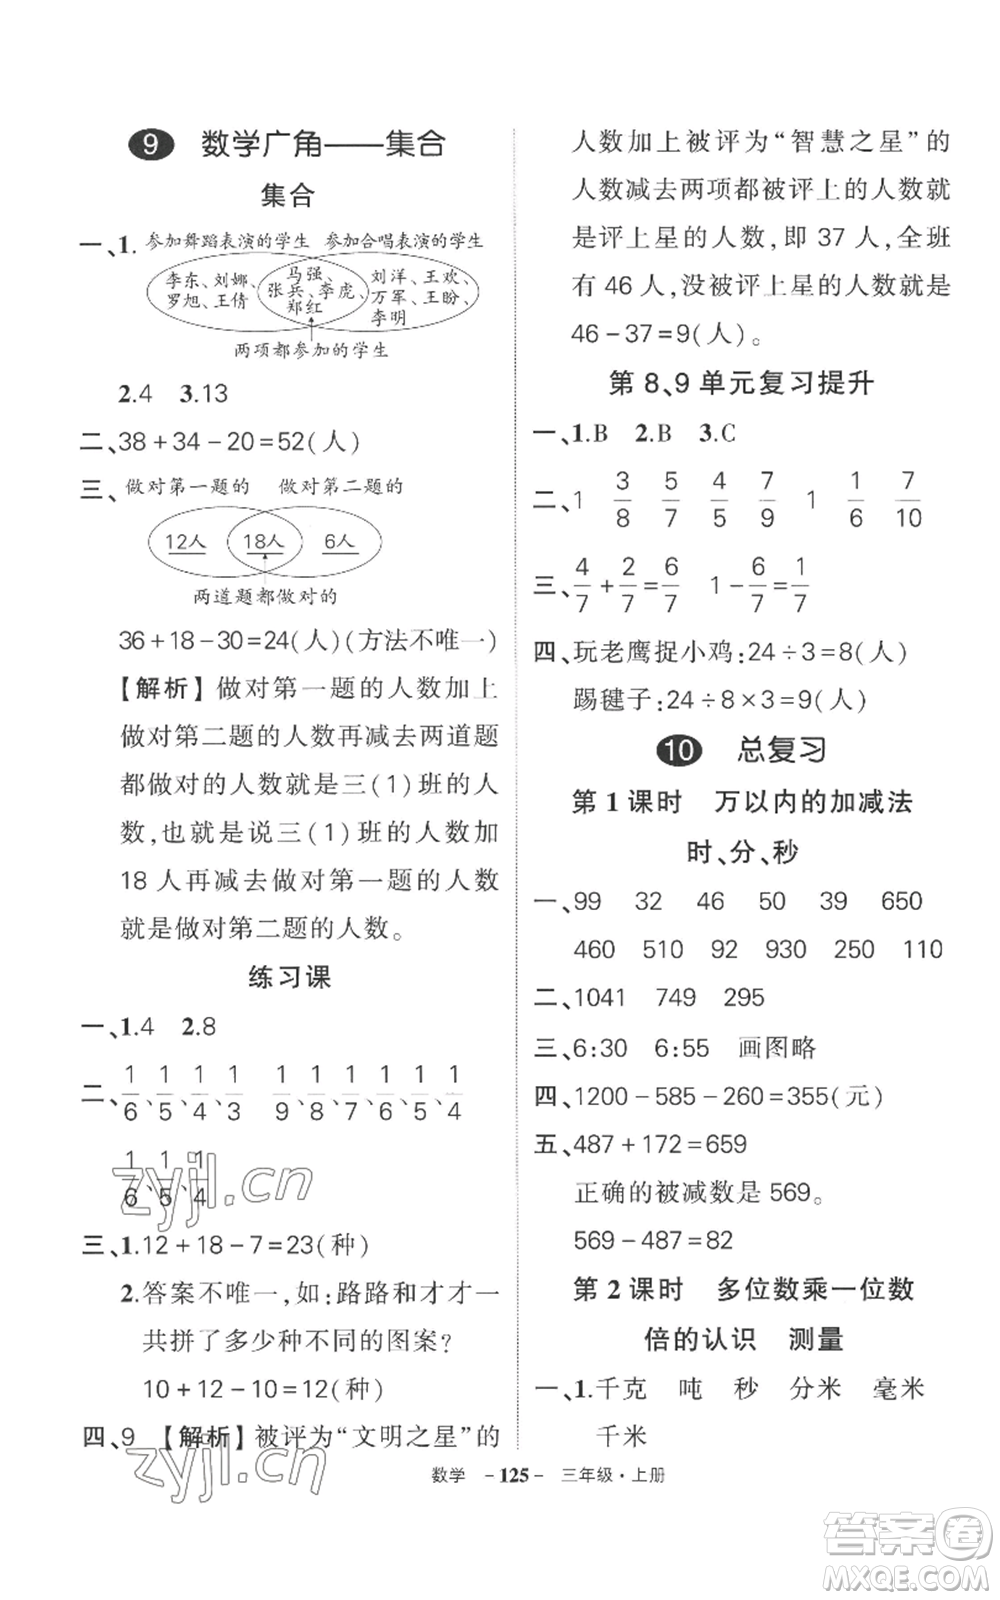 9 数学广角——集合
集合
一、1. 参加舞蹈表演的学生 参加合唱表演的学生
李东、刘娜、 马强、 刘洋、王欢、
罗旭、王倩 张兵、李虎、 万军、王盼、
郑红 李明
两项都参加的学生
2.4 3.13
二、38+34-20=52(人)
三、做对第一题的 做对第二题的
12人 18人 6人
两道题都做对的
36+18-30=24(人)(方法不唯一)
【解析】做对第一题的人数加上
做对第二题的人数再减去两道题
都做对的人数就是三(1)班的人
数,也就是说三(1)班的人数加
18人再减去做对第一题的人数
就是做对第二题的人数。
练习课
一、1.4 2.8
二、1/6、1/5、1/4、1/3 1/9、1/8、1/7、1/6、1/5、1/4
1/6、1/5、1/4
三、1.12+18-7=23(种)
2.答案不唯一,如:路路和才才一
共拼了多少种不同的图案?
10+12-10=12(种)
四、9 【解析】被评为“文明之星”的
人数加上被评为“智慧之星”的
人数减去两项都被评上的人数就
是评上星的人数,即37人,全班
有46人,没被评上星的人数就是
46-37=9(人)。
第8、9单元复习提升
一、1.B 2.B 3.C
二、1 3/8 5/7 4/5 7/9 1 1/6 7/10
三、4/7+2/7=6/7 1-6/7=1/7
四、玩老鹰捉小鸡:24÷3=8(人)
踢毽子:24÷8×3=9(人)
10 总复习
第1课时 万以内的加减法
时、分、秒
一、99 32 46 50 39 650
460 510 92 930 250 110
二、1041 749 295
三、6:30 6:55 画图略
四、1200-585-260=355(元)
五、487+172=659
正确的被减数是569。
569-487=82
第2课时 多位数乘一位数
倍的认识 测量
一、1.千克 吨 秒 分米 毫米
千米
数学 -125- 三年级·上册
zyjl.cn
zyjl.cn
答案圈
MXQE.COM